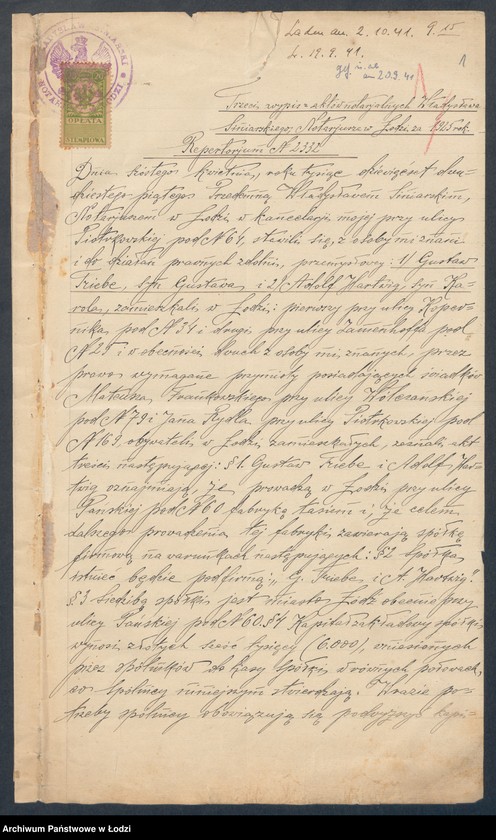 Laden am. 2. 10. 41. 9.15
L. 19. 9. 41.
am 20.9.41
1
OPŁATA
STEMPLOWA
Trzeci wypis z aktów notarjalnych Władysława
Siniarskiego, Notarjusza w Łodzi za 1925 rok.
Repertorjum N 2332
Dnia szóstego kwietnia, roku tysiąc dziewięćset dwu-
dziestego-piątego Przedemną Władysławem Siniarskim,
Notarjuszem w Łodzi w kancelarji mojej przy ulicy
Piotrkowskiej pod N 64, stawili się, z osoby mi znani
i do działań prawnych zdolni, przemysłowcy: 1/ Gustaw
Triebe, syn Gustawa i 2/ Adolf Hartwig syn Ka-
rola, zamieszkali w Łodzi: pierwszy przy ulicy Koper-
nika pod N 54 i drugi przy ulicy Zamenhofa pod
N 25 i w obecności dwuch z osoby mi znanych, przez
prawo wymagane przymioty posiadających świadków
Mateusza Frankowskiego przy ulicy Wólczańskiej
pod N 79 i Jana Rydla przy ulicy Piotrkowskiej pod
N 163, obywateli, w Łodzi zamieszkałych, zeznali akt
treści następującej: § 1. Gustaw Triebe i Adolf Har-
twig oznajmiają, że prowadzą w Łodzi przy ulicy
Pańskiej pod N 60 fabrykę taśm i że celem
dalszego prowadzenia tej fabryki zawierają spółkę
firmową na warunkach następujących: § 2 Spółka
istnieć będzie pod firmą: „G. Triebe i A. Hartwig".
§ 3 Siedzibą spółki jest miasto Łódź obecnie przy
ulicy Pańskiej pod N 60. § 4 Kapitał zakładowy spółki
wynosi złotych sześć tysięcy (6.000), wniesionych
przez spólników do kasy spółki w równych połowach,
co spólnicy niniejszym stwierdzają. W razie po-
trzeby spólnicy obowiązują się podwyższyć kapi-
Archiwum Państwowe w Łodzi